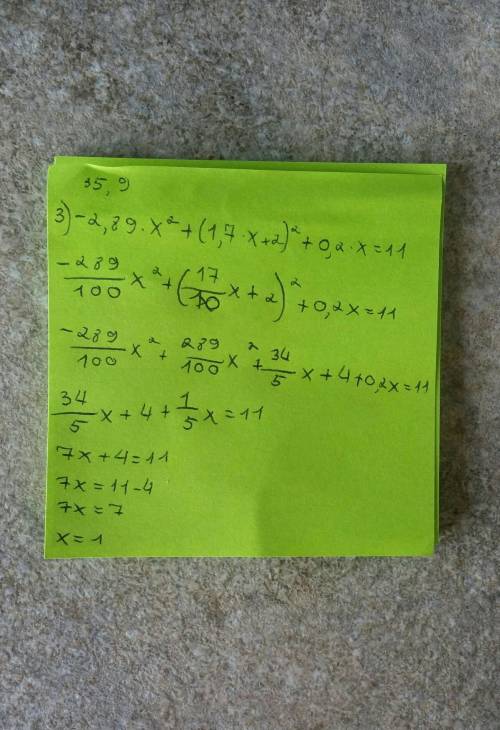 35, 9
3) -2,89·x² + (1,7·x+2)² + 0,2·x = 11
-289/100 x² + (17/10 x + 2)² + 0,2x = 11
-289/100 x² + 289/100 x² + 34/5 x + 4 + 0,2x = 11
34/5 x + 4 + 1/5 x = 11
7x + 4 = 11
7x = 11 - 4
7x = 7
x = 1